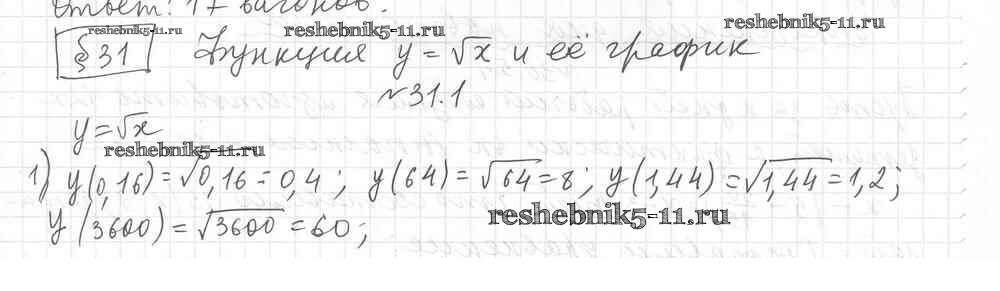 Ответ: 17 вагонов.
reshebnik5-11.ru reshebnik5-11.ru reshebnik5-11.ru
§ 31 Функция y = √x и её график
№31.1
y = √x
reshebnik5-11.ru
1) y(0,16) = √0,16 = 0,4 ; y(64) = √64 = 8 ; y(1,44) = √1,44 = 1,2 ;
y(3600) = √3600 = 60 ; reshebnik5-11.ru